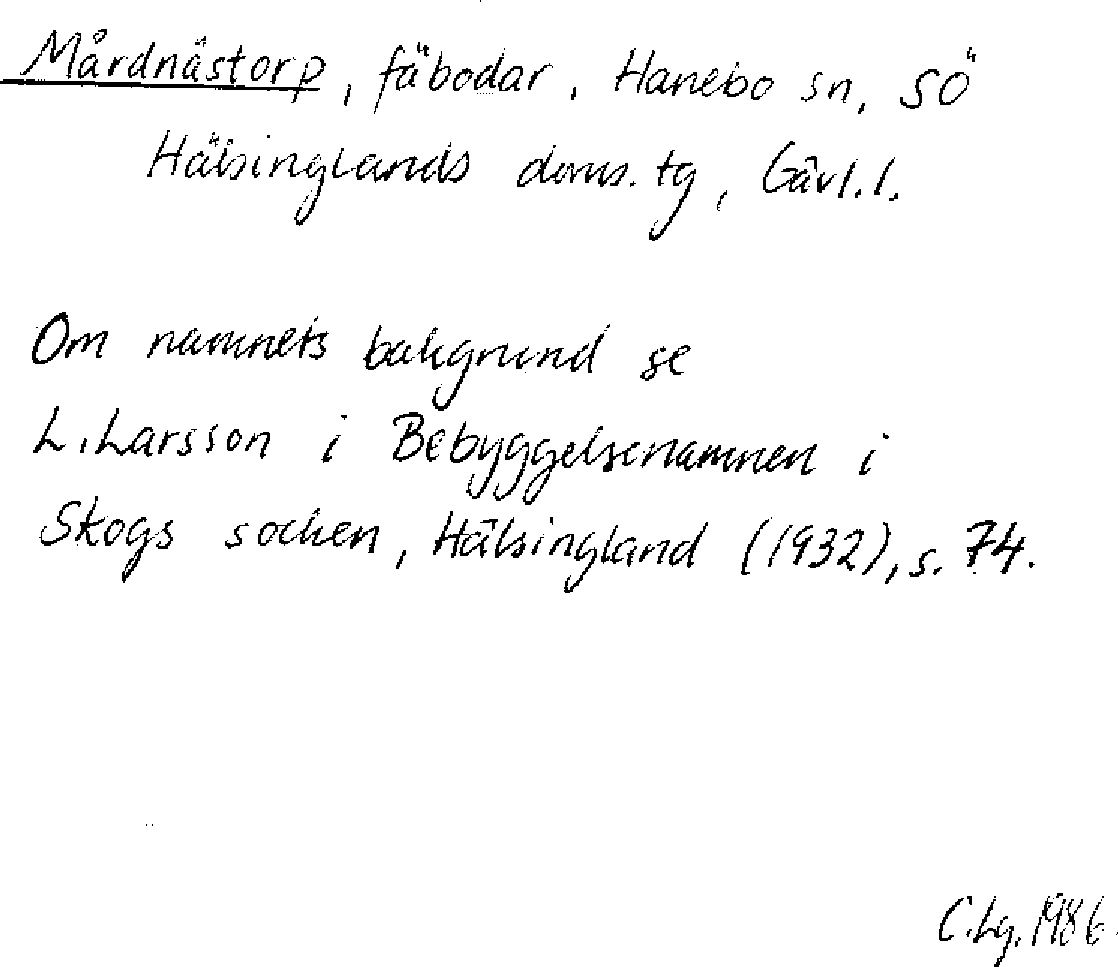 Mårdnästorp, fäbodar, Hanebo sn, SÖ
Hälsinglands doms.tg, Gävl.l.
Om namnets bakgrund se
L. Larsson i Bebyggelsenamnen i
Skogs socken, Hälsingland (1932), s. 74.
C.Lg. 1986.